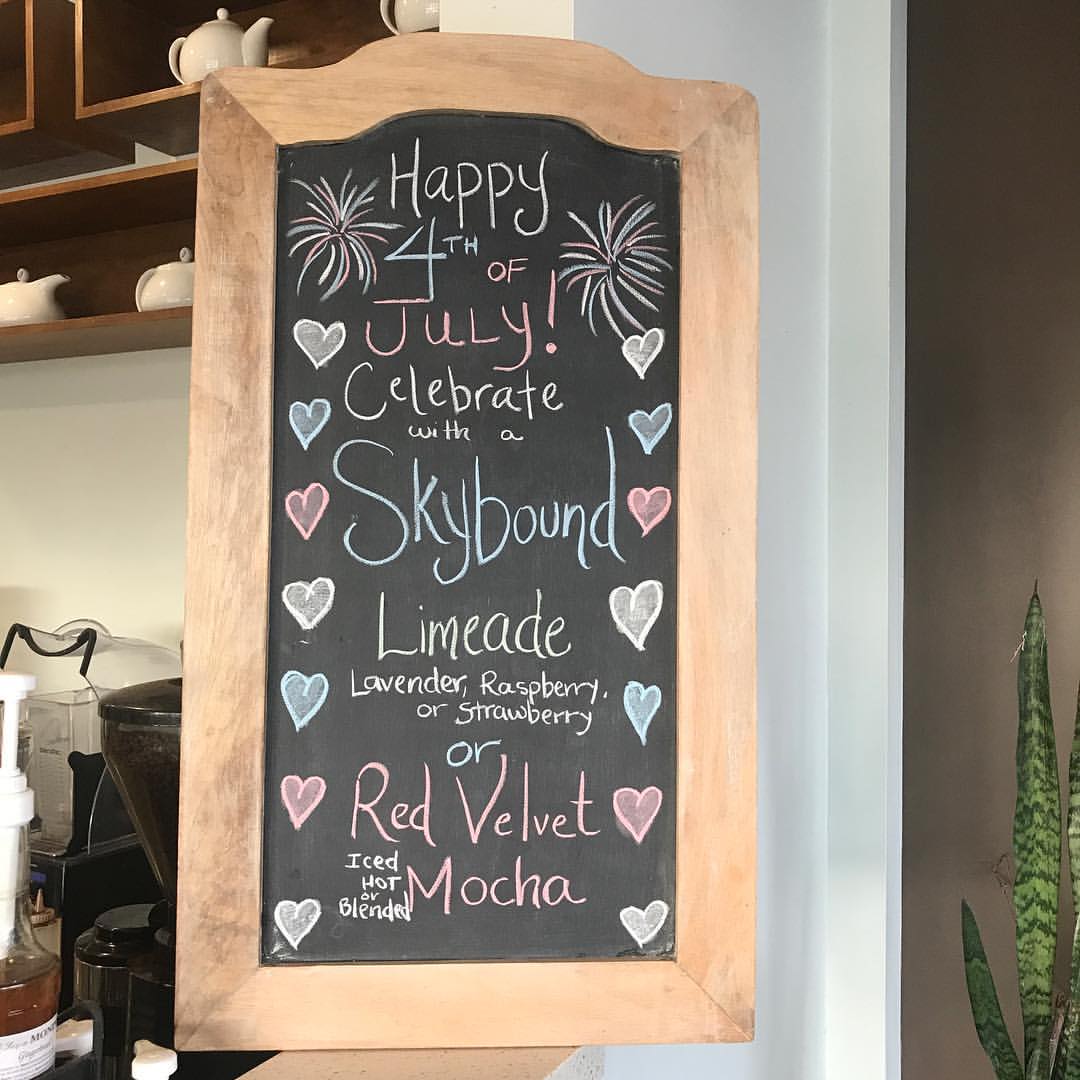 Happy
4TH
OF
JULY!
Celebrate
with a
Skybound
Limeade
Lavender, Raspberry,
or Strawberry
or
Red Velvet
Iced
HOT
or
Blended
Mocha
MON